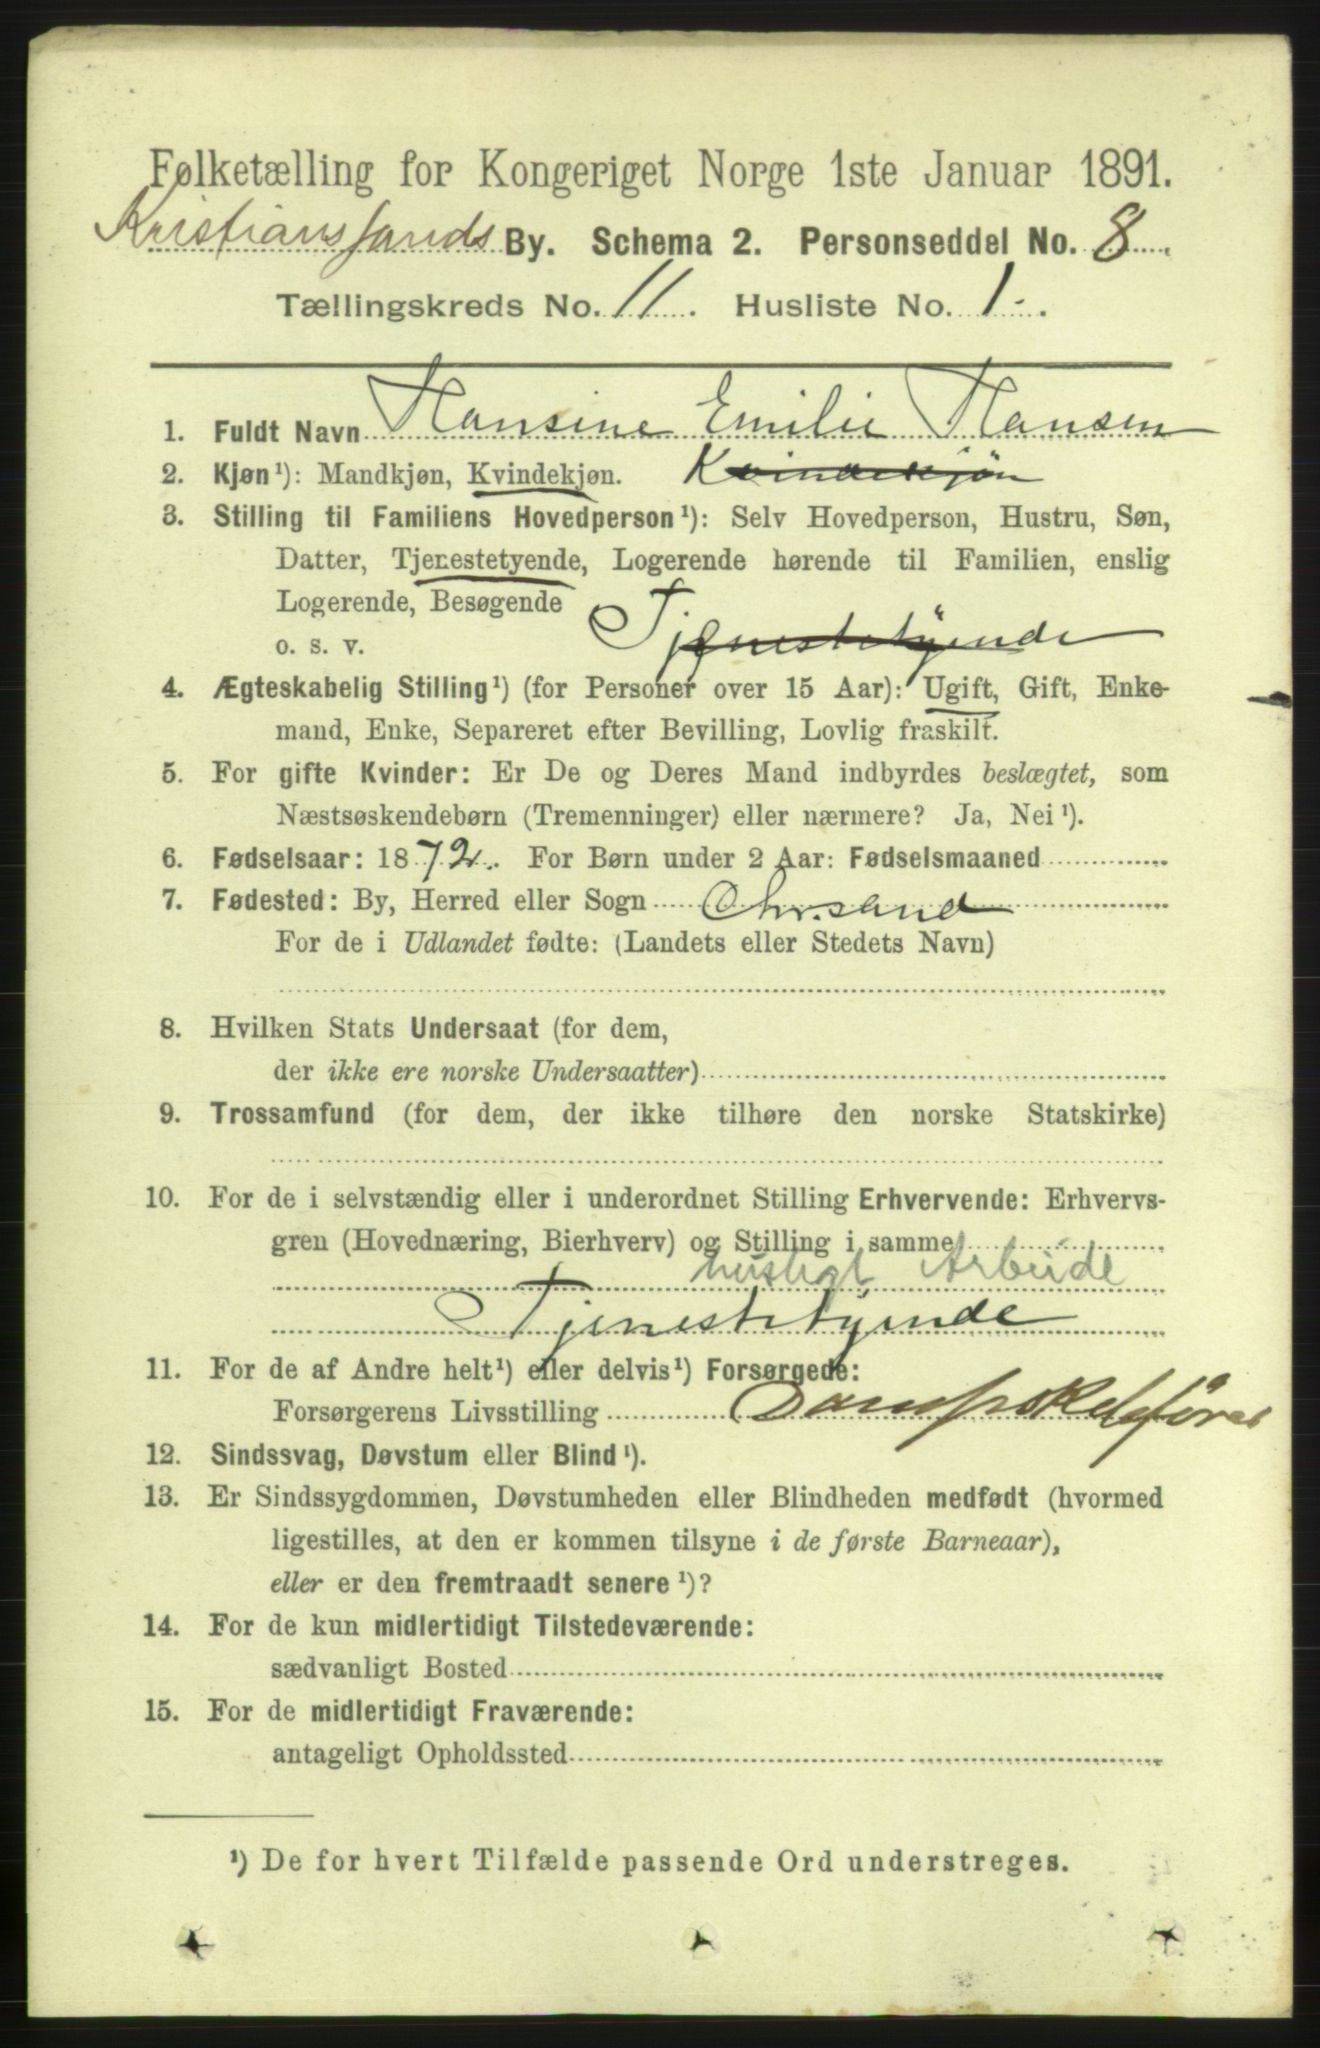 Folketælling for Kongeriget Norge 1ste Januar 1891.
Kristianssands By. Schema 2. Personseddel No. 8
Tællingskreds No. 11. Husliste No. 1.
1. Fuldt Navn Hansine Emilie Hansen
2. Kjøn¹): Mandkjøn, Kvindekjøn. Kvindekjøn
3. Stilling til Familiens Hovedperson¹): Selv Hovedperson, Hustru, Søn,
Datter, Tjenestetyende, Logerende hørende til Familien, enslig
Logerende, Besøgende
o. s. v. Tjenestetyende
4. Ægteskabelig Stilling¹) (for Personer over 15 Aar): Ugift, Gift, Enke-
mand, Enke, Separeret efter Bevilling, Lovlig fraskilt.
5. For gifte Kvinder: Er De og Deres Mand indbyrdes beslægtet, som
Næstsøskendebørn (Tremenninger) eller nærmere? Ja, Nei¹).
6. Fødselsaar: 1872. For Børn under 2 Aar: Fødselsmaaned
7. Fødested: By, Herred eller Sogn Chr.sand
For de i Udlandet fødte: (Landets eller Stedets Navn)
8. Hvilken Stats Undersaat (for dem,
der ikke ere norske Undersaatter)
9. Trossamfund (for dem, der ikke tilhøre den norske Statskirke)
10. For de i selvstændig eller i underordnet Stilling Erhvervende: Erhvervs-
gren (Hovednæring, Bierhverv) og Stilling i samme
husligt Arbeide
Tjenestetyende
11. For de af Andre helt¹) eller delvis¹) Forsørgede:
Forsørgerens Livsstilling
12. Sindssvag, Døvstum eller Blind¹).
13. Er Sindssygdommen, Døvstumheden eller Blindheden medfødt (hvormed
ligestilles, at den er kommen tilsyne i de første Barneaar),
eller er den fremtraadt senere¹)?
14. For de kun midlertidigt Tilstedeværende:
sædvanligt Bosted
15. For de midlertidigt Fraværende:
antageligt Opholdssted
¹) De for hvert Tilfælde passende Ord understreges.